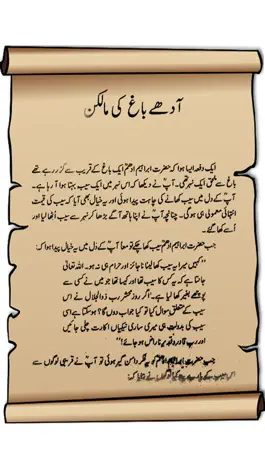 آدھے باغ کی مالکن
ایک دفعہ ایسا ہوا کہ حضرت ابراہیم ادھمؒ ایک باغ کے قریب سے گزر رہے تھے
باغ سے ملحق ایک نہر تھی۔ آپؒ نے دیکھا کہ اس نہر میں ایک سیب بہتا ہوا آ رہا ہے۔
آپؒ کے دل میں سیب کھانے کی چاہت پیدا ہوئی اور یہ خیال بھی آیا کہ سیب کی قیمت
انتہائی معمولی ہی ہو گی۔ چنانچہ آپؒ نے اپنا ہاتھ آگے بڑھا کر نہر سے سیب اُٹھا لیا اور
اُسے کھا گئے۔
جب حضرت ابراہیم ادھمؒ سیب کھا چکے تو معاً آپؒ کے دل میں یہ خیال پیدا ہوا کہ:
"کہیں میرا یہ سیب کھا لینا ناجائز اور حرام ہی نہ ہو۔ اللہ تعالیٰ
جانتا ہے کہ یہ کس کا سیب تھا اور کیسا تھا جو میں نے کسی سے
پوچھے بغیر کھا لیا ہے۔ اگر روزِ محشر رب ذوالجلال نے اس
سیب کے متعلق سوال کیا تو کیا جواب دوں گا؟ ہو سکتا ہے اسی
سیب کی بدولت ہی میری ساری نیکیاں اکارت چلی جائیں
اور رب قادر و قدیر ناراض ہو جائے!"
جب حضرت ابراہیم ادھمؒ کو یہ فکر دامن گیر ہوئی تو آپؒ نے قریبی لوگوں سے